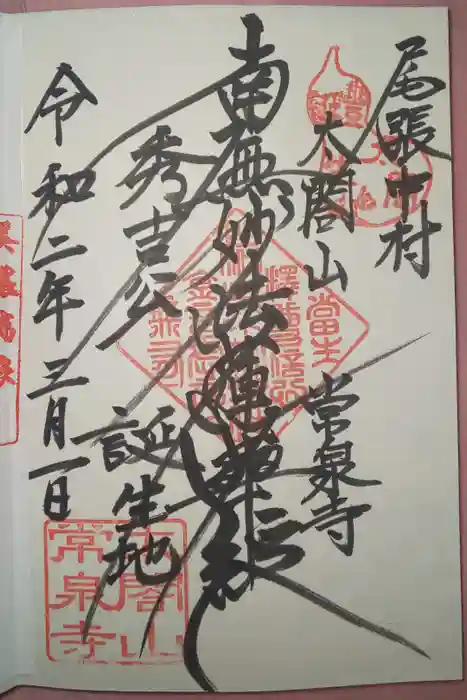 尾張中村
太閤山
常泉寺
南無妙法蓮華経
秀吉公
誕生地
令和二年三月一日
太閤山
常泉寺